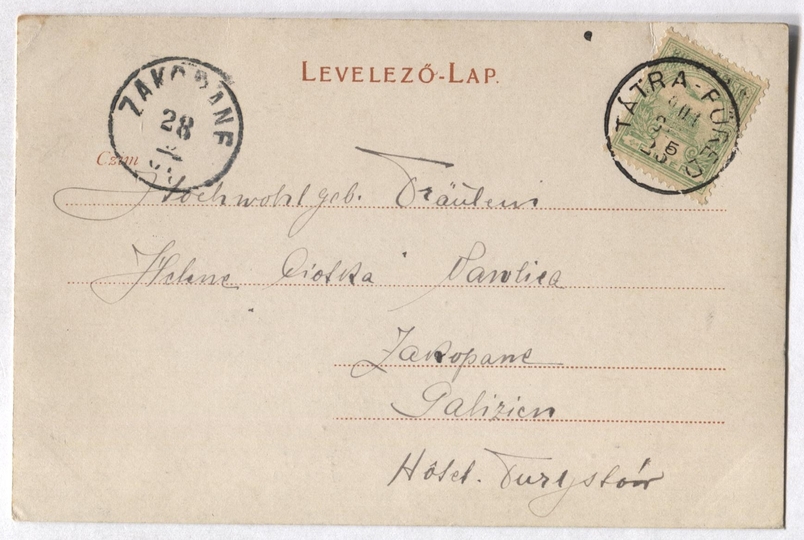 LEVELEZŐ-LAP.
ZAKOPANE
28
TÁTRA-FÜRED
Czim
Hochwohlgeb. Fräulein
Helene Ciotka
Zakopane
Galizien
Hôtel. Turystów